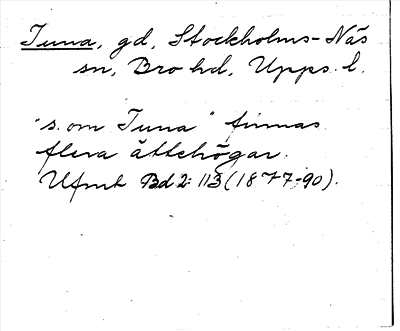 Tuna, gd, Stockholms-Näs
sn, Bro hd, Upps. l.
"s. om Tuna" finnas
flera ättehögar.
Ufmt Bd 2: 113 (1877-90).